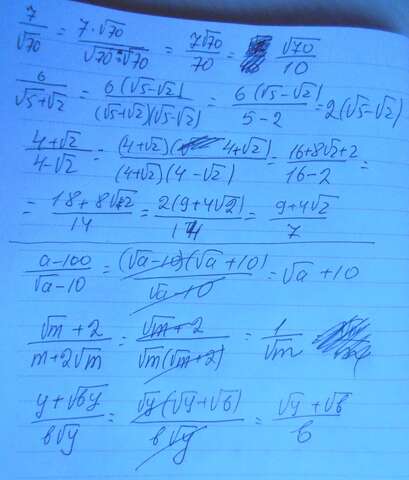 7/√70 = 7·√70/√70·√70 = 7√70/70 = √70/10
6/√5+√2 = 6(√5-√2)/(√5+√2)(√5-√2) = 6(√5-√2)/5-2 = 2(√5-√2)
4+√2/4-√2 = (4+√2)(4+√2)/(4+√2)(4-√2) = 16+8√2+2/16-2 =
= 18+8√2/14 = 2(9+4√2)/14 = 9+4√2/7
a-100/√a-10 = (√a-10)(√a+10)/√a-10 = √a+10
√m+2/m+2√m = √m+2/√m(√m+2) = 1/√m
y+√вy/в√y = √y(√y+√в)/в√y = √y+√в/в